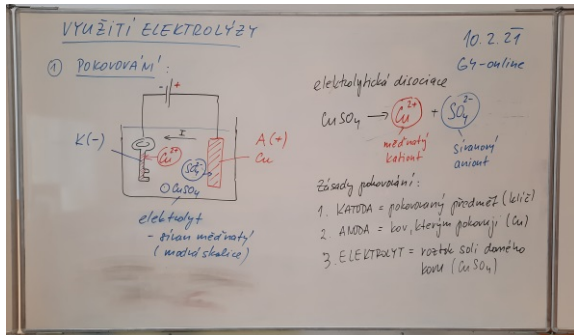 VYUŽITÍ ELEKTROLÝZY
10.2.21
G4-online
① POKOVOVÁNÍ:
- +
K(-)
I
A(+)
Cu
Cu²⁺
SO₄²⁻
CuSO₄
elektrolyt
- síran měďnatý
(modrá skalice)
elektrolytická disociace
CuSO₄ → Cu²⁺ + SO₄²⁻
měďnatý
kationt
síranový
aniont
Zásady pokovování:
1. KATODA = pokovovaný předmět (klíč)
2. ANODA = kov, kterým pokovuji (Cu)
3. ELEKTROLYT = roztok soli daného
kovu (CuSO₄)